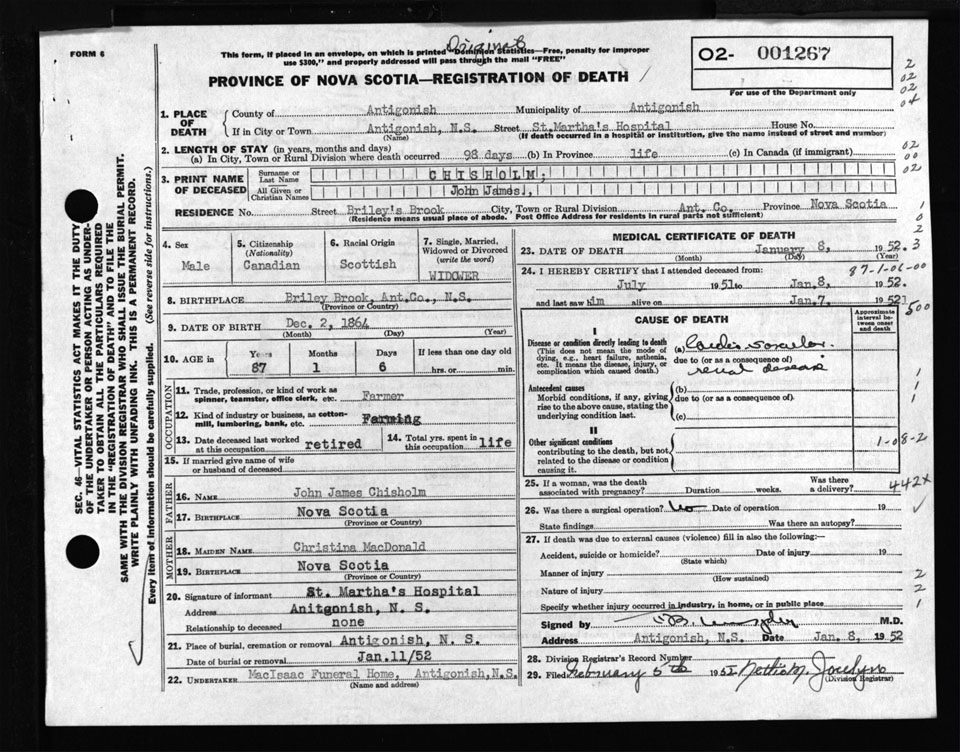 FORM 6
Original
This form, if placed in an envelope, on which is printed "Dominion Statistics—Free, penalty for improper
use $300," and properly addressed will pass through the mail "FREE"
PROVINCE OF NOVA SCOTIA—REGISTRATION OF DEATH
02- 001267
For use of the Department only
2
02
02
04
1. PLACE OF DEATH
County of Antigonish Municipality of Antigonish
If in City or Town Antigonish, N.S. Street St.Martha's Hospital House No.
(Name) (If death occurred in a hospital or institution, give the name instead of street and number)
2. LENGTH OF STAY (in years, months and days)
(a) In City, Town or Rural Division where death occurred 98 days (b) In Province life (c) In Canada (if immigrant)
02
00
02
3. PRINT NAME OF DECEASED
Surname or Last Name CHISHOLM,
All Given or Christian Names John James.,
RESIDENCE No. Street Briley's Brook City, Town or Rural Division Ant. Co. Province Nova Scotia
(Residence means usual place of abode. Post Office Address for residents in rural parts not sufficient)
1
0
2
3
4. Sex Male
5. Citizenship (Nationality) Canadian
6. Racial Origin Scottish
7. Single, Married, Widowed or Divorced (write the word) WIDOWER
8. BIRTHPLACE Briley Brook, Ant.Co., N.S.
(Province or Country)
9. DATE OF BIRTH Dec. 2, 1864
(Month) (Day) (Year)
10. AGE in Years Months Days If less than one day old
87 1 6 hrs. or min.
OCCUPATION
11. Trade, profession, or kind of work as spinner, teamster, office clerk, etc. Farmer
12. Kind of industry or business, as cotton-mill, lumbering, bank, etc. Farming
13. Date deceased last worked at this occupation retired
14. Total yrs. spent in this occupation life
15. If married give name of wife or husband of deceased
FATHER
16. NAME John James Chisholm
17. BIRTHPLACE Nova Scotia
(Province or Country)
MOTHER
18. MAIDEN NAME Christina MacDonald
19. BIRTHPLACE Nova Scotia
(Province or Country)
20. Signature of informant St. Martha's Hospital
Address Anitgonish, N. S.
Relationship to deceased none
21. Place of burial, cremation or removal Antigonish, N. S.
Date of burial or removal Jan.11/52
22. UNDERTAKER MacIsaac Funeral Home, Antigonish,N.S.
(Name and address)
MEDICAL CERTIFICATE OF DEATH
23. DATE OF DEATH January 8, 1952.
(Month) (Day) (Year)
87-1-06-00
24. I HEREBY CERTIFY that I attended deceased from:
July 1951 to Jan.8, 1952.
and last saw him alive on Jan.7. 1952
500
CAUSE OF DEATH
Approximate interval between onset and death
I
Disease or condition directly leading to death (a) Cardio vascular
(This does not mean the mode of dying, e.g., heart failure, asthenia, etc. It means the disease, injury, or complication which caused death.)
due to (or as a consequence of)
renal disease
Antecedent causes (b)
Morbid conditions, if any, giving rise to the above cause, stating the underlying condition last.
due to (or as a consequence of)
(c)
1
1
1
II
Other significant conditions
contributing to the death, but not related to the disease or condition causing it.
1-08-2
25. If a woman, was the death associated with pregnancy? Duration weeks. Was there a delivery?
442x
26. Was there a surgical operation? no Date of operation 19
State findings Was there an autopsy?
27. If death was due to external causes (violence) fill in also the following:—
Accident, suicide or homicide? Date of injury 19
(State which)
Manner of injury
(How sustained)
Nature of injury
Specify whether injury occurred in industry, in home, or in public place
2
2
1
Signed by M.D.
Address Antigonish, N.S. Date Jan. 8, 1952
28. Division Registrar's Record Number
29. Filed February 5th 1952 Jocelyn
(Division Registrar)
SEC. 46—VITAL STATISTICS ACT MAKES IT THE DUTY
OF THE UNDERTAKER OR PERSON ACTING AS UNDER-
TAKER TO OBTAIN ALL THE PARTICULARS REQUIRED
IN THE "REGISTRATION OF DEATH" AND TO FILE THE
SAME WITH THE DIVISION REGISTRAR WHO SHALL ISSUE THE BURIAL PERMIT.
WRITE PLAINLY WITH UNFADING INK. THIS IS A PERMANENT RECORD.
Every item of information should be carefully supplied. (See reverse side for instructions.)